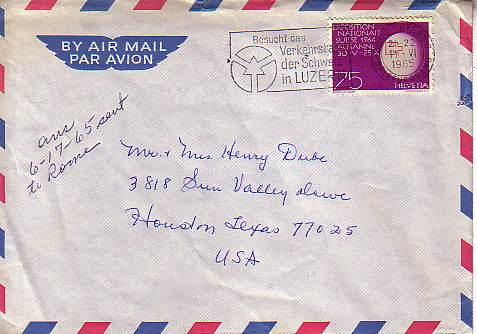 BY AIR MAIL
PAR AVION
Besucht das
Verkehrsha
der Schwei
in LUZER
EXPOSITION
NATIONALE
SUISSE 1964
LAUSANNE
30.IV-25.X
75
HELVETIA
21-22
VI
1965
ans
6-17-65 sent
to Rome
Mr. & Mrs. Henry Dube
3818 Sun Valley Drive
Houston Texas 77025
USA